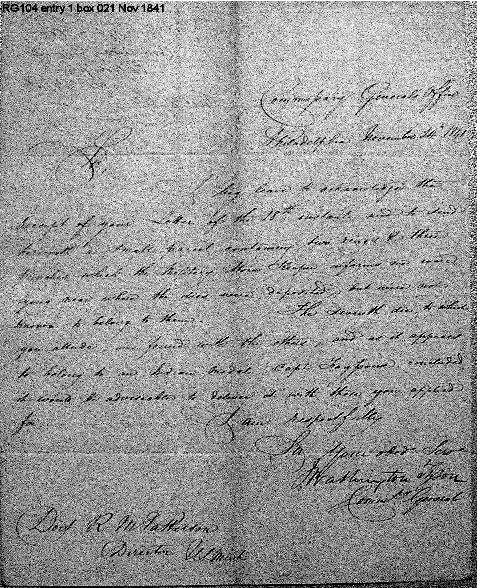 RG104 entry 1 box 021 Nov 1841
Commissary Generals Office
Philadelphia November 1841
Sir,
I beg leave to acknowledge the
receipt of your Letter of the 18th instant and to send
herewith a small parcel containing two rings & three
which the Military Store Keeper informs me were
near where the dies were deposited, but were not
known to belong to them. The seventh die, to which
you allude was found with the others, and as it appears
to belong to an Indian Medal, Capt. concluded
it would be adviseable to deliver it with those you applied
for. I am respectfully
Sir Your obdt Servt
Commy General
Doct R. M. Patterson
Director US Mint